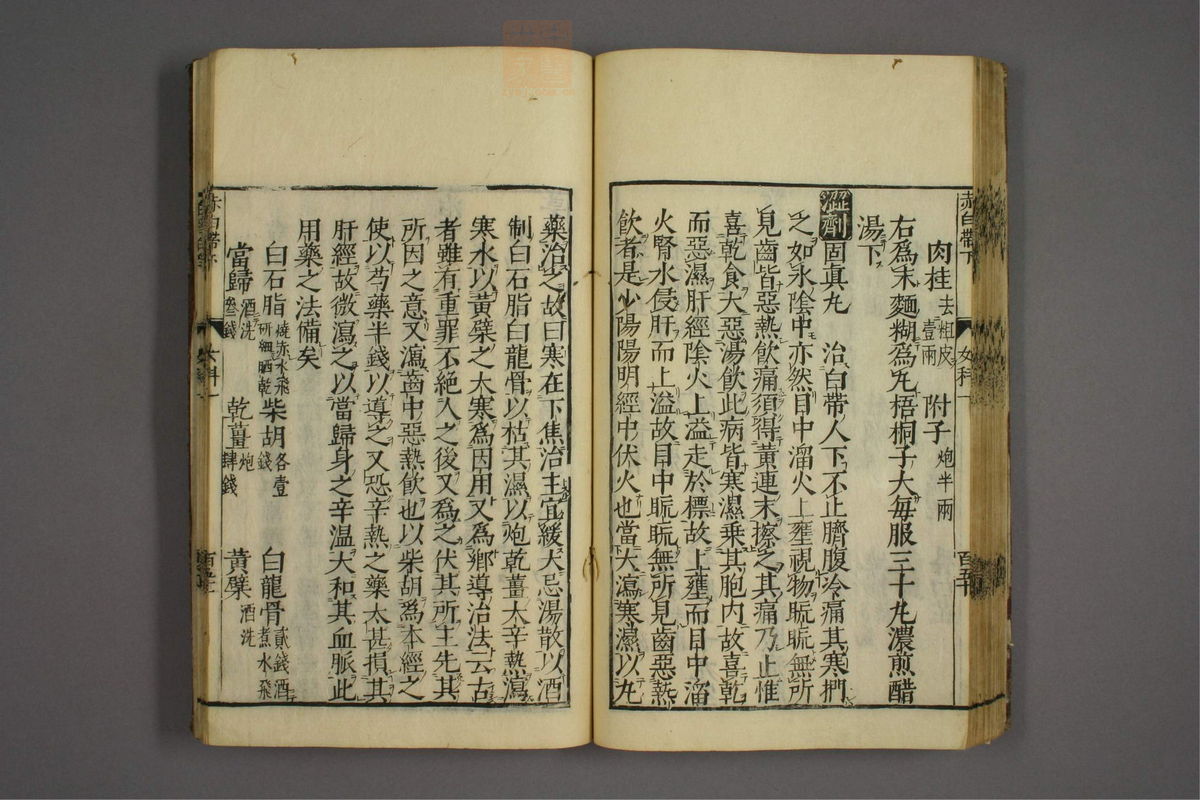 肉桂去粗皮壹兩　附子炮半兩
右爲末麵糊爲丸梧桐子大每服三十丸濃煎醋
湯下
澁劑　固真丸　治白帶人下不止臍腹冷痛其寒捫
之如氷陰中亦然目中溜火上壅視物䀮䀮無所
見齒皆惡熱飲痛須得黃連末擦之其痛乃止惟
喜乾食大惡湯飲此病皆寒濕乗其胞内故喜乾
而惡濕肝經陰火上溢走於標故上壅而目中溜
火腎水侵肝而上溢故目中䀮䀮無所見齒惡熱
飲者是少陽陽明經中伏火也當大瀉寒濕以丸
藥治之故曰寒在下焦治主宜緩大忌湯散以酒
制白石脂白龍骨以枯其濕以炮乾薑大辛熱瀉
寒水以黃蘗之大寒爲因用又爲鄉導治法云古
者雖有重罪不絕人之後又爲之伏其所主先其
所因之意又瀉齒中惡熱飲也以柴胡爲本經之
使以芍藥半錢以導之又恐辛熱之藥太甚損其
肝經故微瀉之以當歸身之辛温大和其血脈此
用藥之法備矣
白石脂燒赤水飛研細晒乾　柴胡各壹錢　白龍骨貳錢酒煮水飛
當歸酒洗叄錢　乾薑炮肆錢　黃蘗酒洗
赤白帶下
女科一